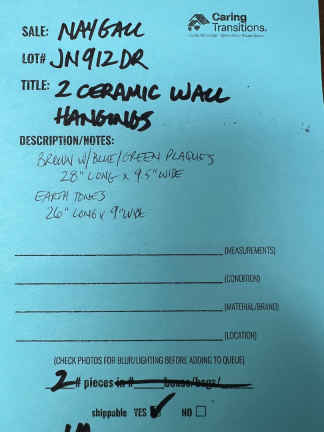 Caring
Transitions.
SALE: NAYGALL
LOT# JN912DR
TITLE: 2 CERAMIC WALL
HANGINGS
DESCRIPTION/NOTES:
BROWN W/BLUE/GREEN PLAQUES
28" LONG X 9.5" WIDE
EARTH TONES
26" LONG X 9" WIDE
(MEASUREMENTS)
(CONDITION)
(MATERIAL/BRAND)
(LOCATION)
(CHECK PHOTOS FOR BLUR/LIGHTING BEFORE ADDING TO QUEUE)
2 # pieces in # boxes/bags/
shippable YES ✓ NO